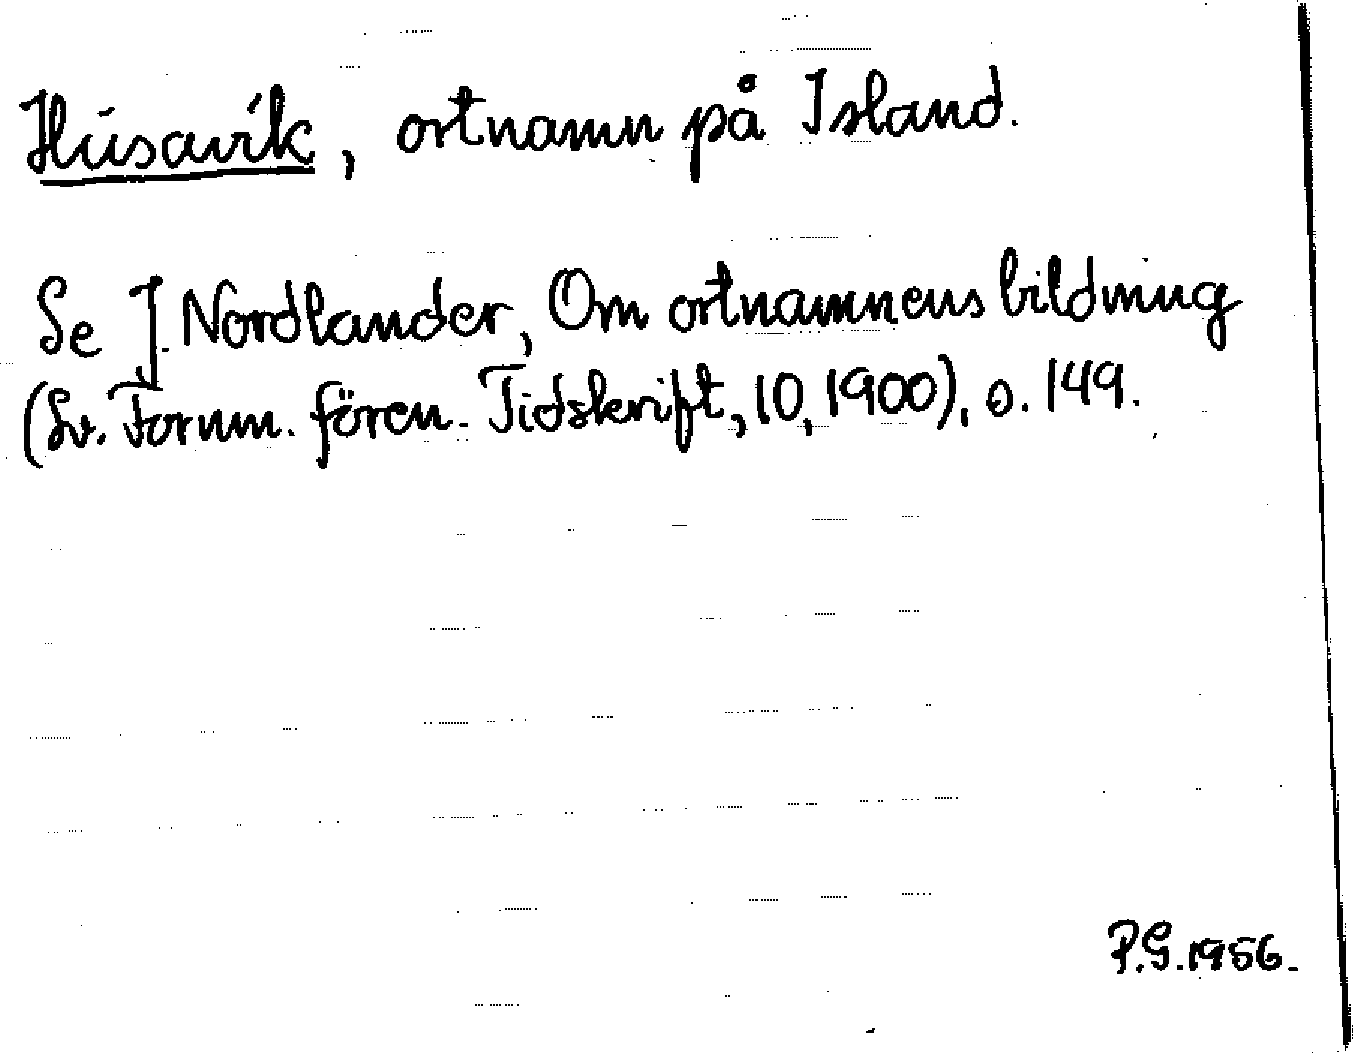 Húsavík, ortnamn på Island.
Se J. Nordlander, Om ortnamnens bildning
(Sv. Fornm. fören. Tidskrift, 10, 1900), s. 149.
P.G. 1956.